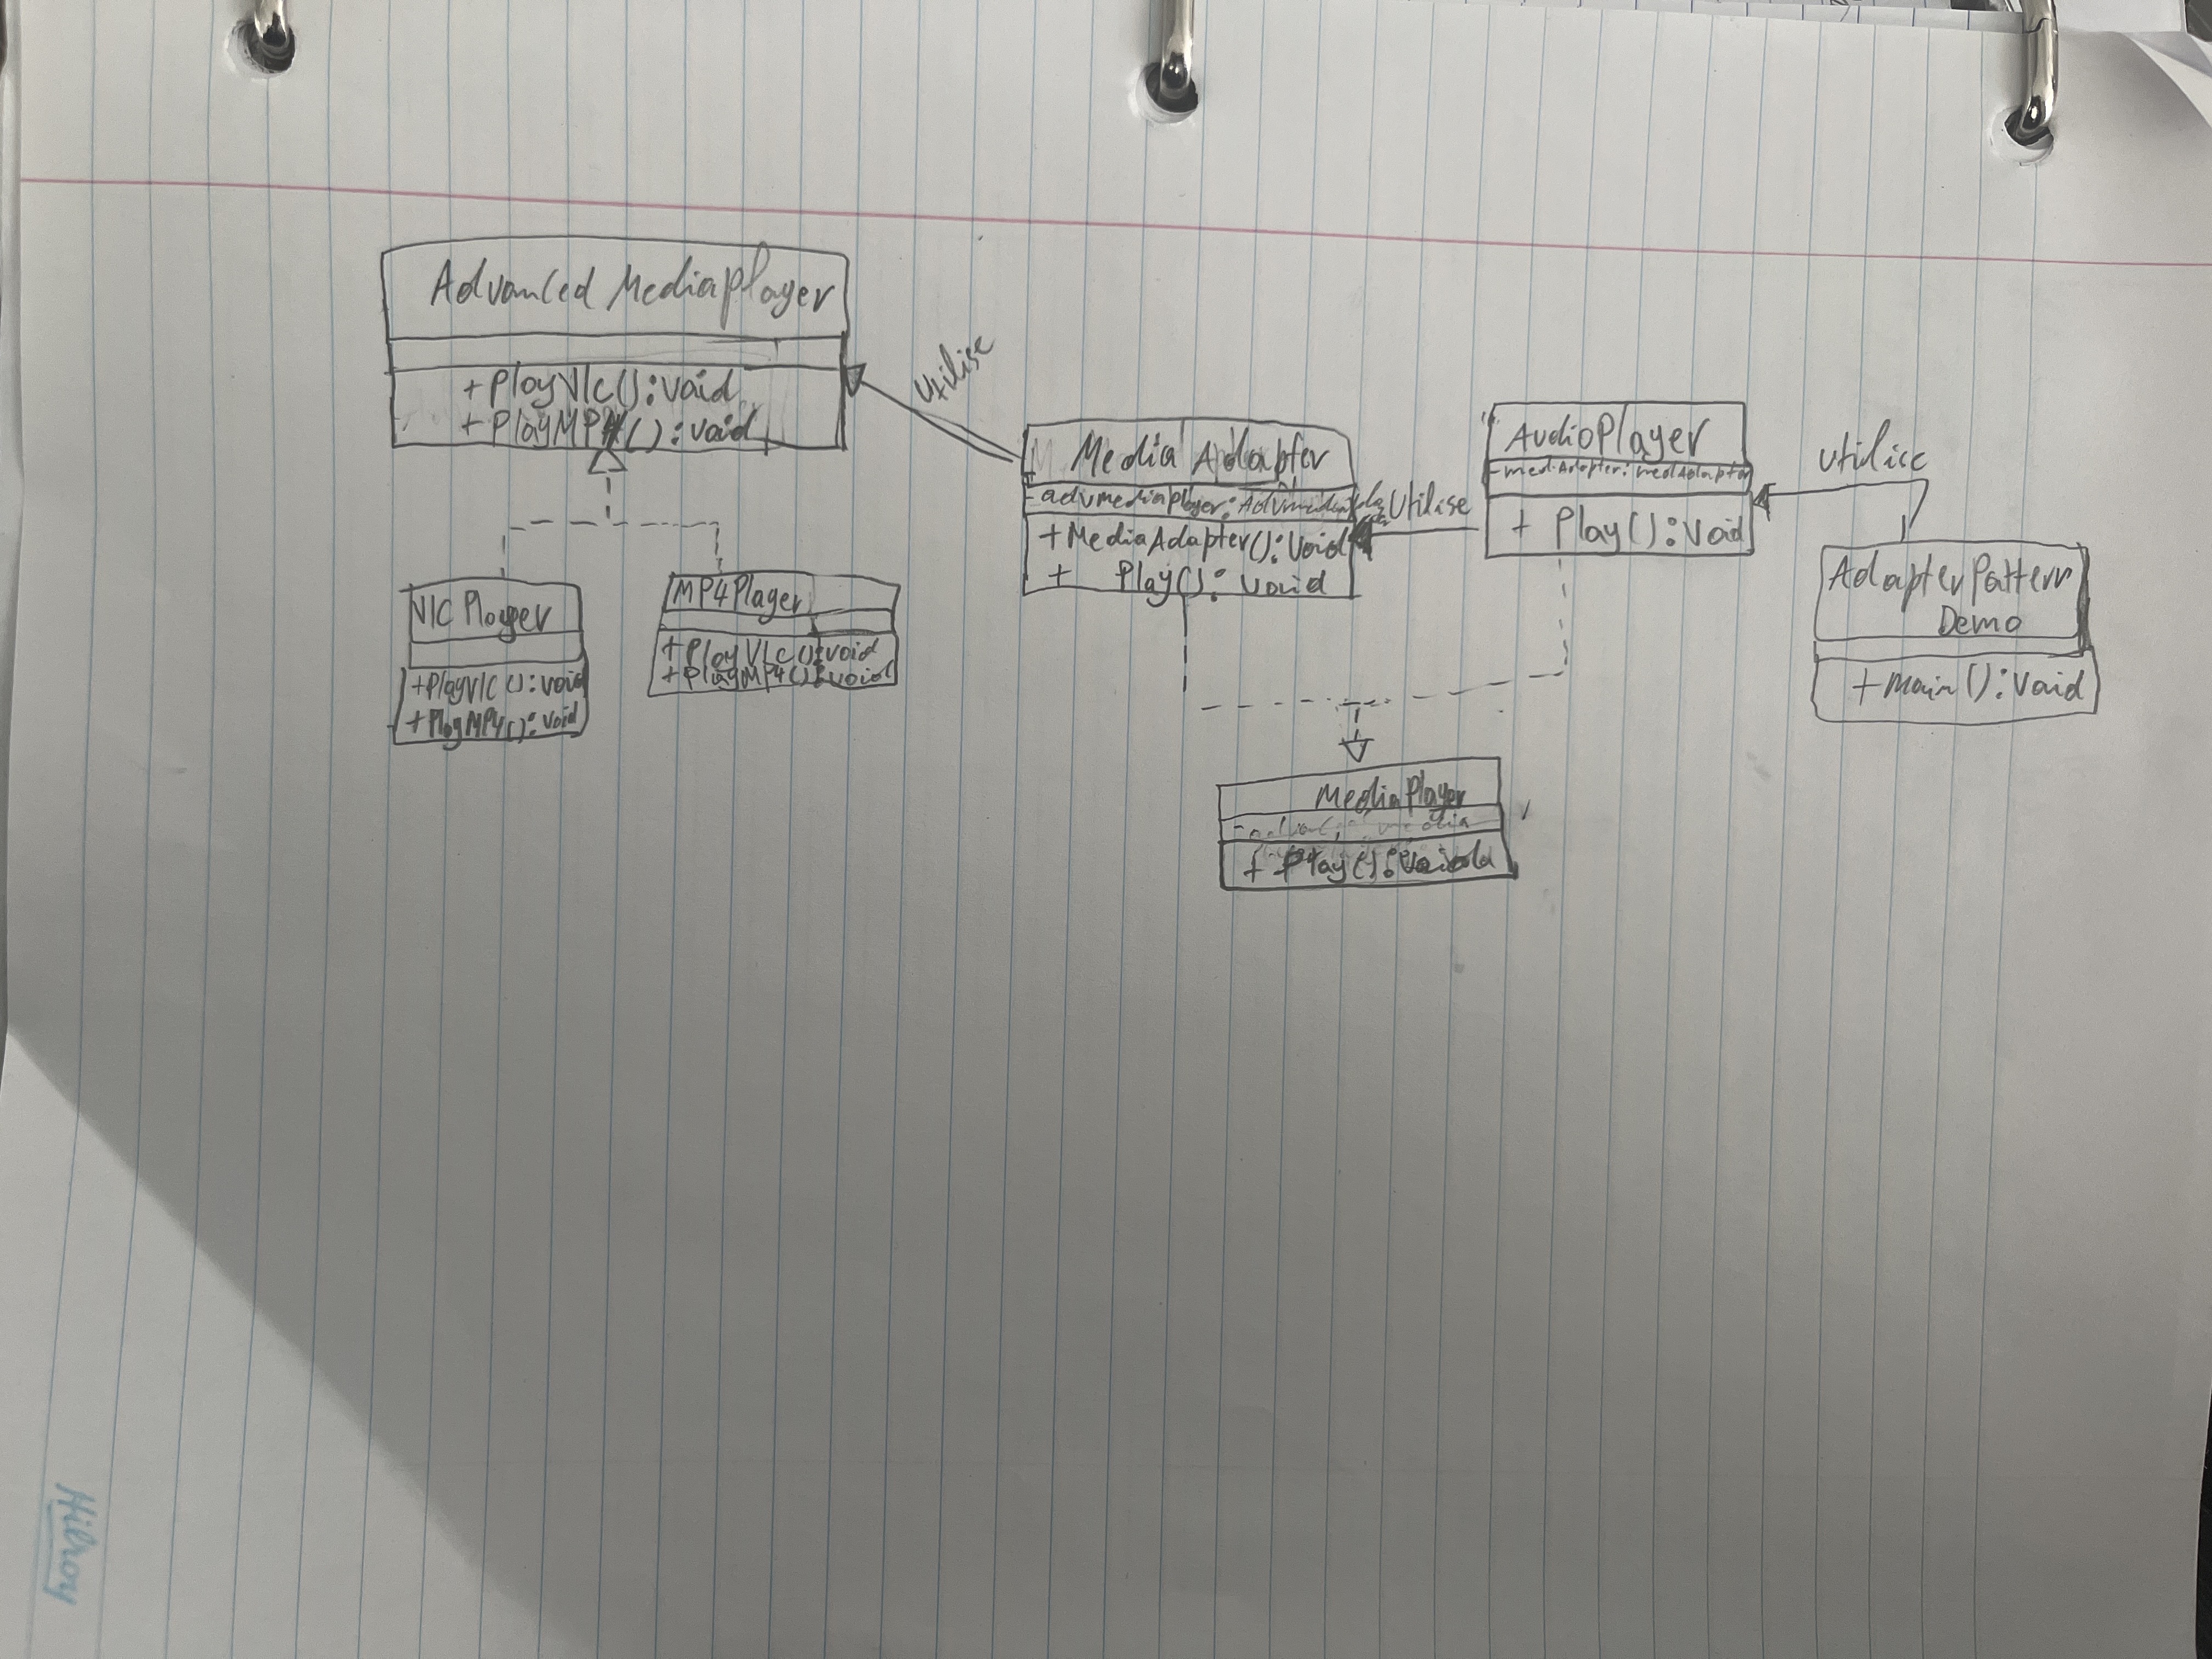 Advanced Mediaplayer
+ PlayVlc():Void
+ PlayMP4():void
VlC Player
+PlayVlC():void
+PlayMP4():void
MP4Player
+ PlayVlc():void
+ PlayMP4():void
utilise
Media Adapter
-advmediaplayer:Advmediaplayer
+MediaAdapter():Void
+ Play():Void
Utilise
MediaPlayer
+ play():Void
AudioPlayer
-mediAdapter:mediAdaptor
+ Play():Void
utilise
AdapterPattern
Demo
+main():Void
Hilroy